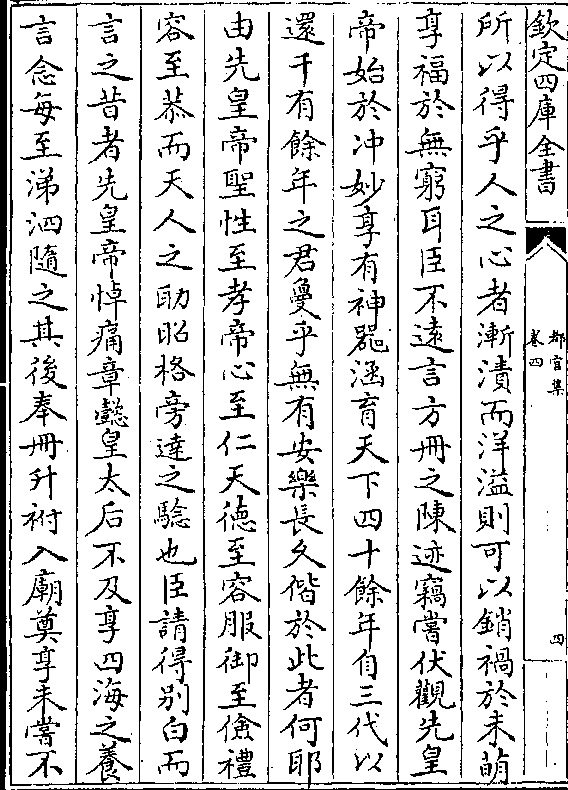 欽定四庫全書
都官集
卷四
四
所以得乎人之心者漸漬而洋溢則可以銷禍於未萌
享福於無窮耳臣不遠言方冊之陳迹竊嘗伏觀先皇
帝始於冲妙享有神器涵育天下四十餘年自三代以
還千有餘年之君曼乎無有安樂長久偕於此者何耶
由先皇帝聖性至孝帝心至仁天德至容服御至儉禮
容至恭而天人之助昭格旁達之騐也臣請得別白而
言之昔者先皇帝悼痛章懿皇太后不及享四海之養
言念每至涕泗隨之其後奉冊升祔入廟奠享未嘗不